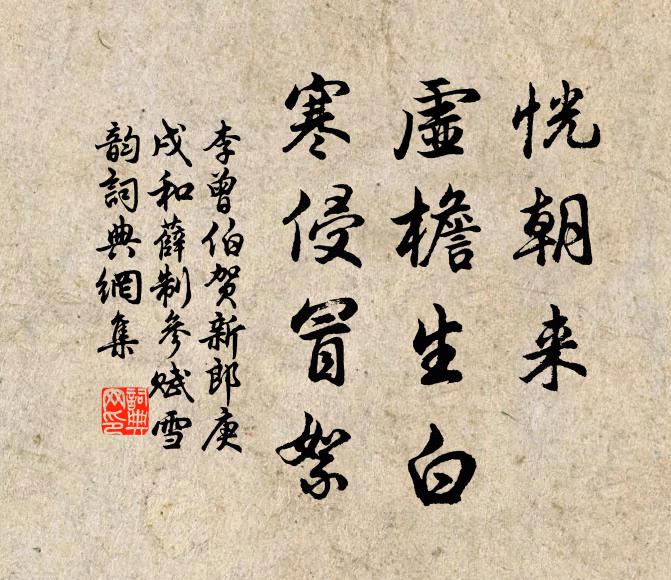 恍朝来
虚檐生白
寒侵冒絮
李曾伯贺新郎庚
戌和薛制參赋雪
韵詞典網集
詞典
网印